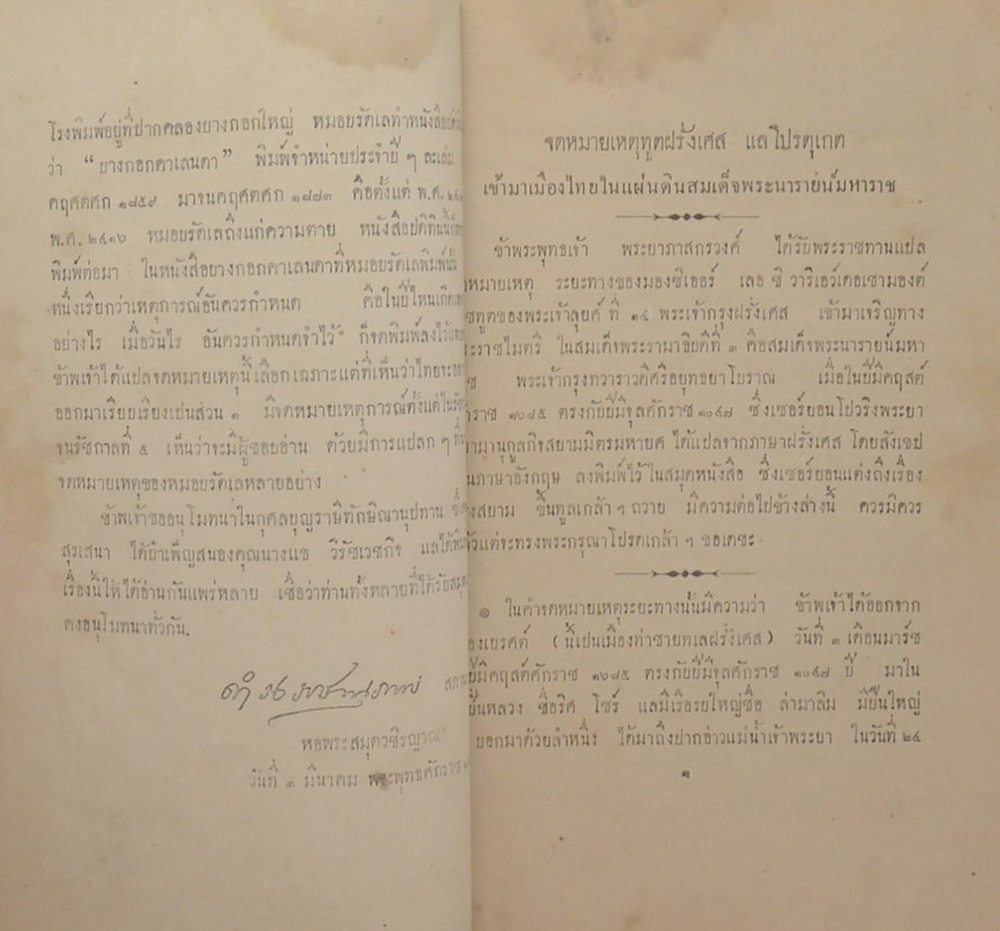 โรงพิมพ์อยู่ที่ปากคลองบางกอกใหญ่ หมอบรัดเลทำหนังสือ
ว่า “บางกอกคาเลนดา” พิมพ์จำหน่ายประจำปี ๆ ละเล่ม
คฤศตศก ๑๘๕๙ มาจนคฤศตศก ๑๘๗๓ คือตั้งแต่ พ.ศ.
พ.ศ. ๒๔๑๖ หมอบรัดเลถึงแก่ความตาย หนังสือปดิทินนี้
พิมพ์ต่อมา ในหนังสือบางกอกคาเลนดาที่หมอบรัดเลพิมพ์นั้น
หนึ่งเรียกว่าเหตุการณ์อันควรกำหนด คือในปีไหนเกิดเหตุ
อย่างไร เมื่อวันไร อันควรกำหนดจำไว้ ก็จดพิมพ์ลงไว้
ข้าพเจ้าได้แปลจดหมายเหตุนี้เลือกเฉภาะแต่ที่เห็นว่าไทย
ออกมาเรียบเรียงเปนส่วน ๑ มีจดหมายเหตุการณ์ตั้งแต่ใน
จนรัชกาลที่ ๕ เห็นว่าจะมีผู้ชอบอ่าน ด้วยมีการแปลก ๆ
จดหมายเหตุของหมอบรัดเลหลายอย่าง
ข้าพเจ้าขออนุโมทนาในกุศลบุญราษีทักษิณานุปทาน
สุรเสนา ได้บำเพ็ญสนองคุณนางแช วิรัชเวชกิจ แลได้พิมพ์
เรื่องนี้ให้ได้อ่านกันแพร่หลาย เชื่อว่าท่านทั้งหลายที่ได้รับสมุด
คงอนุโมทนาทั่วกัน.
ดำรงราชานุภาพ สภา
หอพระสมุดวชิรญาณ
วันที่ ๓ มีนาคม พระพุทธศักราช
จดหมายเหตุทูตฝรั่งเศส แลโปรตุเกต
เข้ามาเมืองไทยในแผ่นดินสมเด็จพระนารายน์มหาราช
ข้าพระพุทธเจ้า พระยาภาสกรวงศ์ ได้รับพระราชทานแปล
หมายเหตุ ระยะทางของมองซิเออร์ เลอ ชิ วาริเอร์เดอเชามองต์
ทูตของพระเจ้าลุยศ์ ที่ ๑๔ พระเจ้ากรุงฝรั่งเศส เข้ามาเจริญทาง
ราชไมตรี ในสมเด็จพระรามาธิบดีที่ ๓ คือสมเด็จพระนารายน์มหา
ช พระเจ้ากรุงทวาราวดีศรีอยุทธยาโบราณ เมื่อในปีมีคฤสต์
กราช ๑๖๘๕ ตรงกับปีมีจุลศักราช ๑๐๔๗ ซึ่งเซอร์ยอนโบวริงพระยา
ามานุกูลกิจสยามมิตรมหายศ ได้แปลจากภาษาฝรั่งเศส โดยสังเขป
นภาษาอังกฤษ ลงพิมพ์ไว้ในสมุดหนังสือ ซึ่งเซอร์ยอนแต่งถึงเรื่อง
งสยาม ขึ้นทูลเกล้า ฯ ถวาย มีความต่อไปข้างล่างนี้ ควรมิควร
แต่จะทรงพระกรุณาโปรดเกล้า ฯ ขอเดชะ
๏ ในคำจดหมายเหตุระยะทางนั้นมีความว่า ข้าพเจ้าได้ออกจาก
องเบรศต์ (นี้เปนเมืองท่าชายทเลฝรั่งเศส) วันที่ ๓ เดือนมาร์ช
ปีมีคฤสต์ศักราช ๑๖๘๕ ตรงกับปีมีจุลศักราช ๑๐๔๗ ปี มาใน
ปั้นหลวง ชื่อริศ โซร์ แลมีเรือรบใหญ่ชื่อ ล่ามาลิม มีปืนใหญ่
บอกมาด้วยลำหนึ่ง ได้มาถึงปากอ่าวแม่น้ำเจ้าพระยา ในวันที่ ๒๔
๑